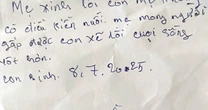 Mẹ xinh lỗi con mẹ
có điều kiện nuôi. mẹ mong người
gặp được con xẽ lối cuọi sống
tốt hơn.
con sinh. 8, 7. 2025.